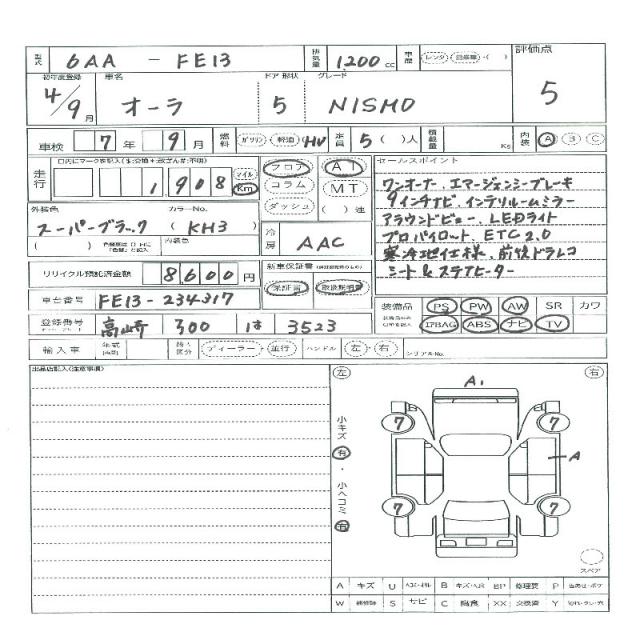 型式 6AA - FE13 排気量 1200 cc 車歴 レンタ・( ) 評価点
初年度登録 車名 ドア 形状 グレード
4/9月 オーラ 5 NISMO 5
車検 7年 9月 燃料 ガソリン・軽油 (HV) 定員 5( )人 積載量 Kg 内装 A B C
走行 1,908 マイル Km フロア コラム ダッシュ AT MT ( )速
セールスポイント
ワンオーナー、エマージェンシーブレーキ
9インチナビ インテリルームミラー
アラウンドビュー、LEDライト
プロパイロット ETC2.0
寒冷地仕様、前後ドラレコ
シート&ステアヒーター
外装色 カラーNo.
スーパーブラック ( KH3 )
内装色
冷房 AAC
リサイクル預託済金額 8600円 新車保証書 保証書 取扱説明書
車台番号 FE13-234317
登録番号 高崎 300 は 3523
装備品 PS PW AW SR カワ
エアBAG ABS ナビ TV
輸入車 年式 輸入区分 ディーラー・並行 ハンドル 左・右 シリアルNo.
出品店記入(注意事項)
左 右
小キズ 有・小ヘコミ 有
A1
7 7
A
7 7
スペア
A キズ U B BP 修理要 P
W S サビ C 腐食 XX 交換済 Y